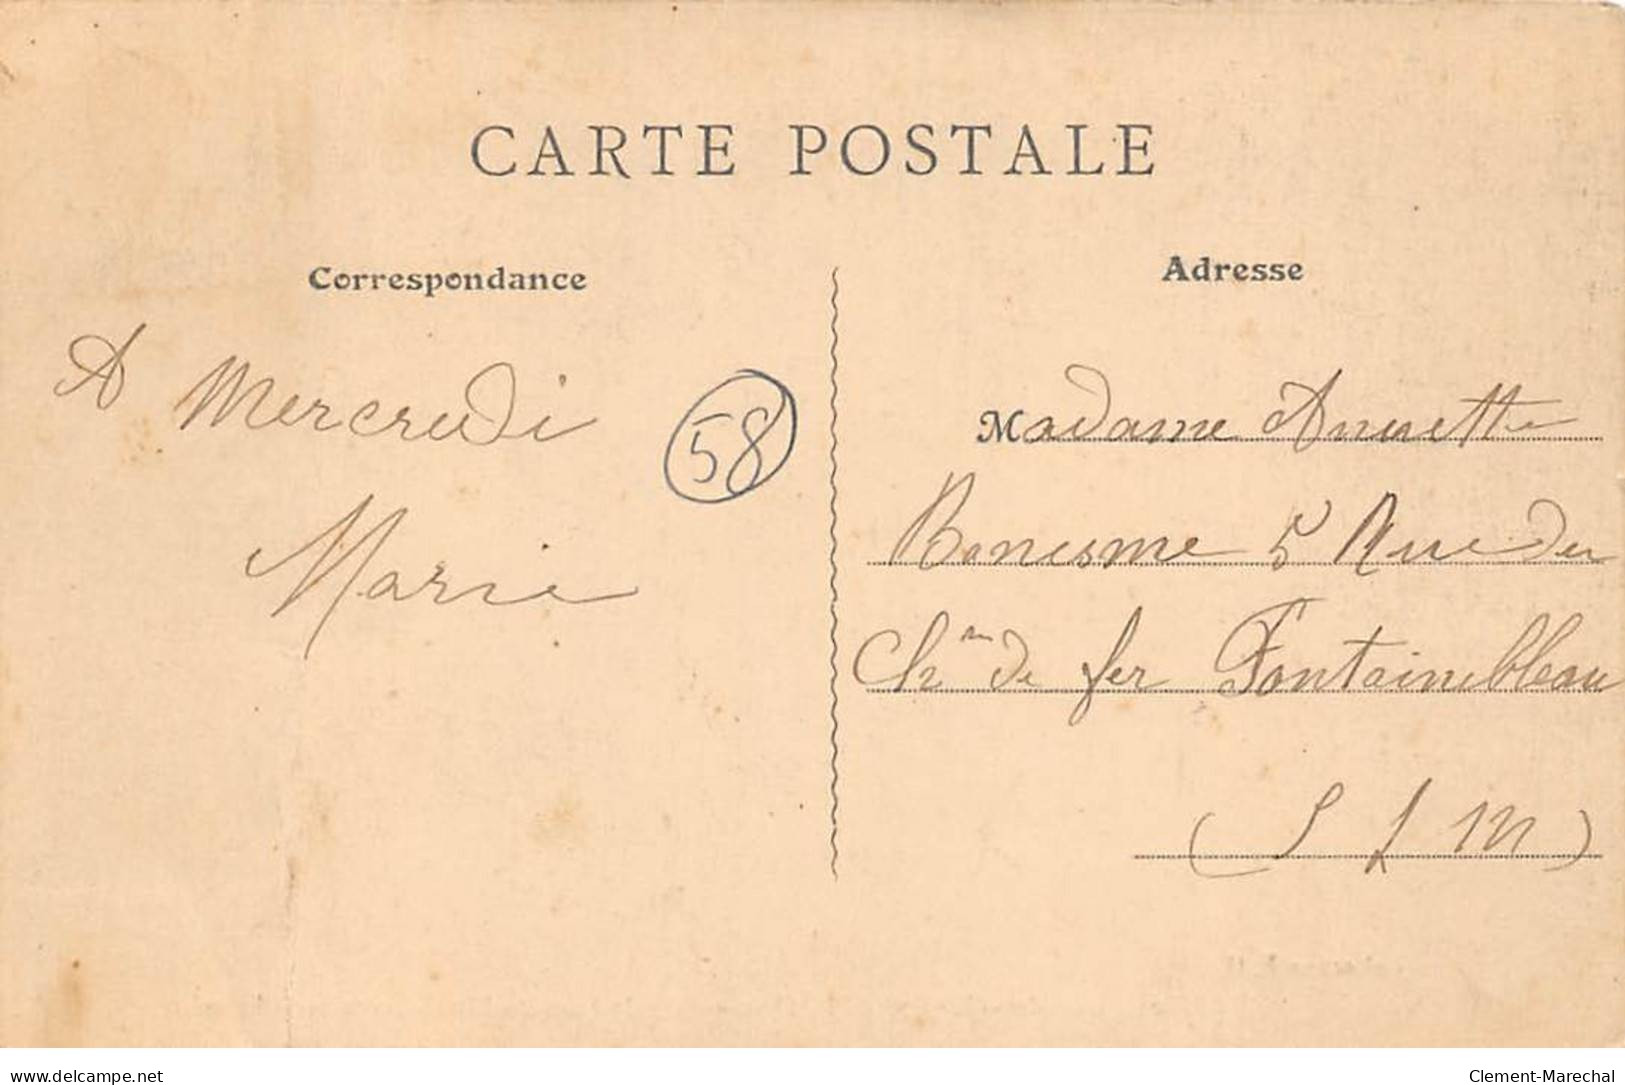 CARTE POSTALE
Correspondance
A Mercredi
58
Marie
Adresse
Madame Annette
Bonesme 5 Rue du
Ch^in de fer Fontainebleau
(S & M)
delcampe.net
Clement-Marechal